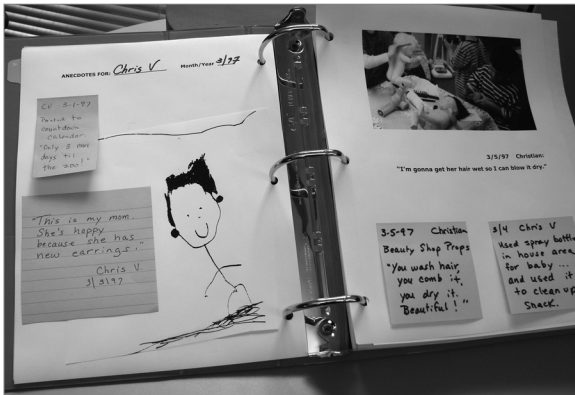 ANECDOTES FOR: Chris V Month/Year 3/97
CV 3-1-97
Pointed to
countdown
calendar
"Only 3 more
days til
the zoo!"
"This is my mom.
She's happy
because she has
new earrings."
Chris V.
3/3/97
3/5/97 Christian:
"I'm gonna get her hair wet so I can blow it dry."
3-5-97 Christian
Beauty Shop Props
"You wash hair,
you comb it,
you dry it.
Beautiful!"
3/4 Chris V
Used spray bottle
in house area
for baby ...
and used it
to clean up
snack.